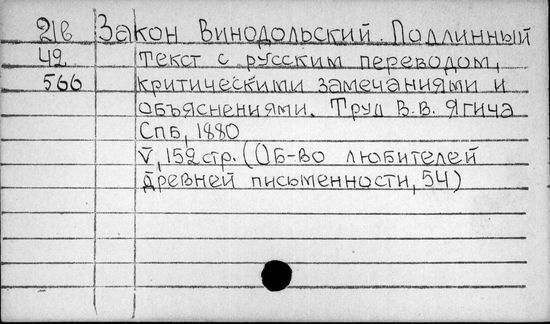 21б Закон Винодольский. Подлинный
42 текст с русским переводом,
566 критическими замечаниями и
объяснениями. Труд В.В. Ягича
Спб, 1880
V, 152 стр. (Об-во любителей
древней письменности, 54)